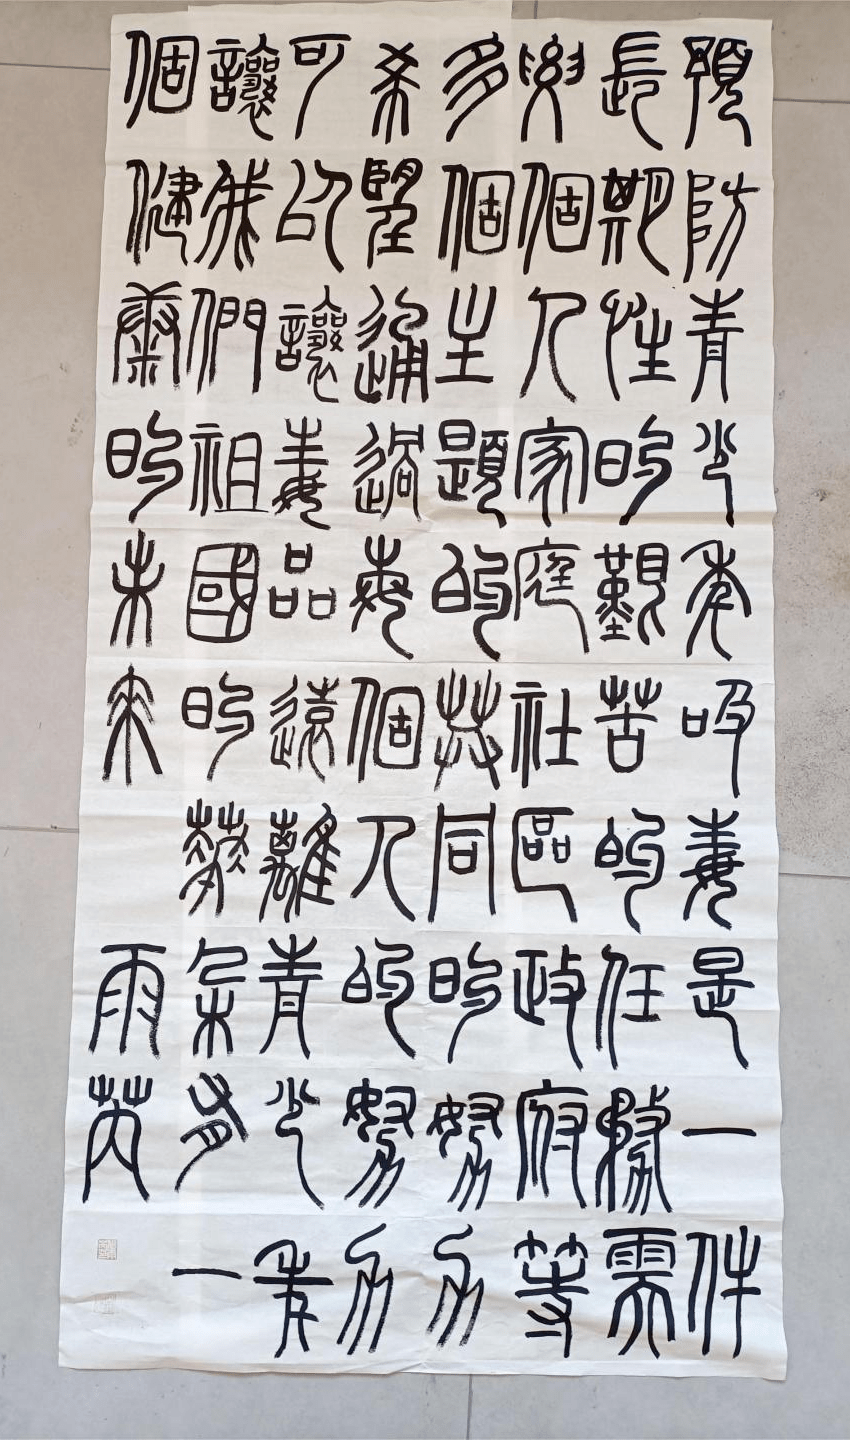 預防青少年吸毒是一件
長期性的艱苦的任務需
要個人家庭社區政府等
多個主題的共同的努力
希望通過每個人的努力
可以讓毒品遠離青少年
讓我們祖國的花朵有一
個健康的未來
雨芮